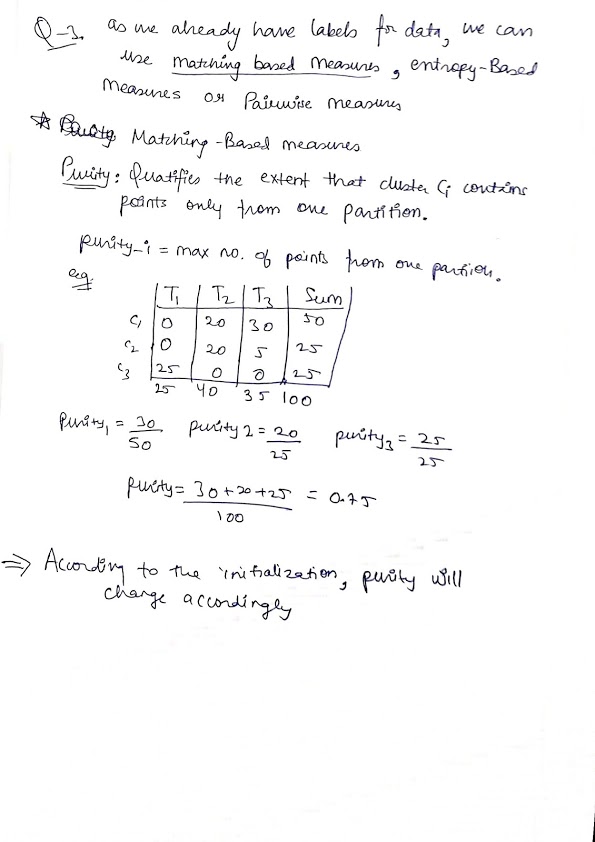 Q-3. as we already have labels for data, we can
use matching based measures, entropy-Based
Measures or Pairwise measures
* Matching-Based measures
Purity: Quatifies the extent that cluster Ci contains
points only from one partition.
purity_i = max no. of points from one partion.
eg.
T1 T2 T3 Sum
C1 0 20 30 50
C2 0 20 5 25
C3 25 0 0 25
25 40 35 100
Purity1 = 30/50 purity 2 = 20/25 purity3 = 25/25
purity = 30+20+25/100 = 0.75
⇒ According to the initialization, purity will
change accordingly